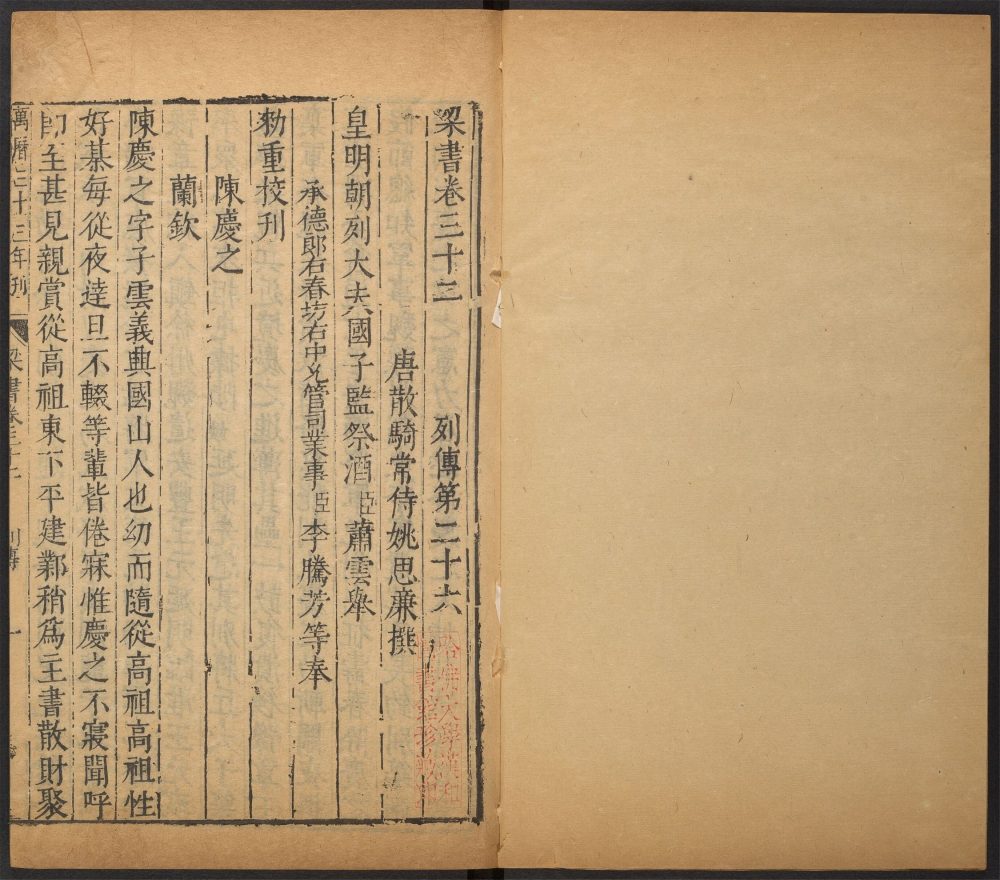 梁書卷三十二 列傳第二十六
唐散騎常侍姚思廉撰
皇明朝列大夫國子監祭酒臣蕭雲舉
承德郎右春坊右中允管司業事臣李騰芳等奉
勑重校刊
陳慶之
蘭欽
陳慶之字子雲義興國山人也幼而隨從高祖高祖性
好棊每從夜達旦不輟等輩皆倦寐惟慶之不寢聞呼
即至甚見親賞從高祖東下平建鄴稍爲主書散財聚
萬曆三十三年刊 梁書卷三十二 列傳 一
哈佛大學漢和
圖書館珍藏印